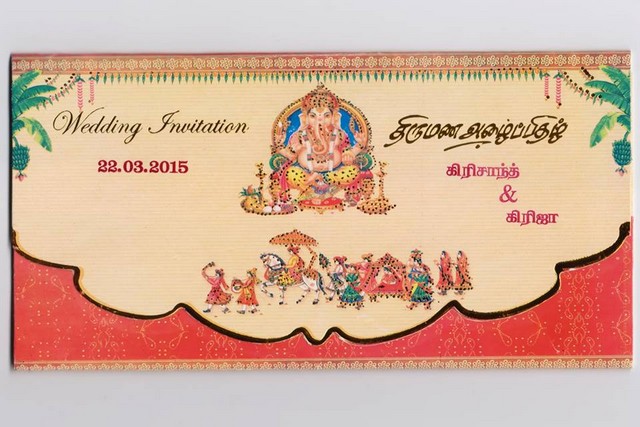 Wedding Invitation
22.03.2015
திருமண அழைப்பிதழ்
கிரிசாந்த்
&
கிரிஜா